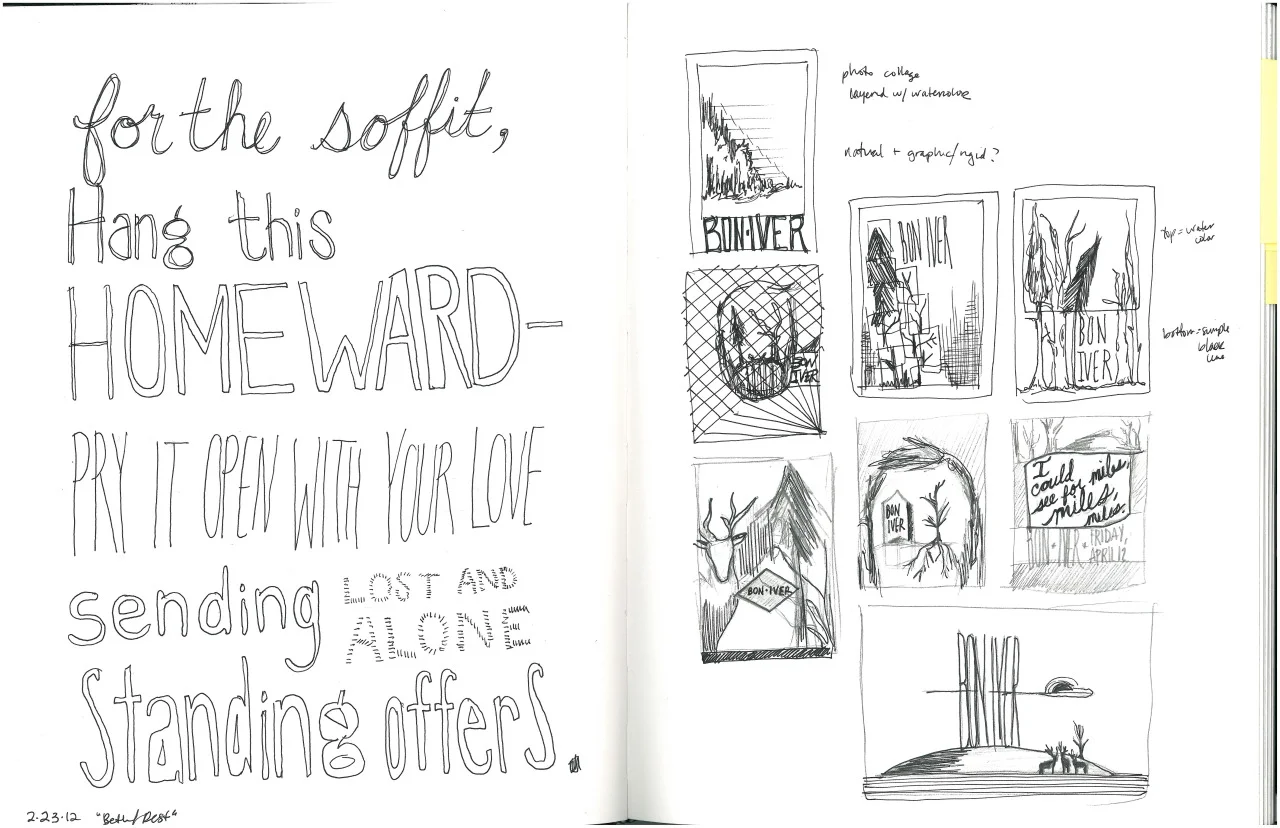 for the soffit,
Hang this
HOMEWARD-
PRY IT OPEN WITH YOUR LOVE
sending LOST AND
ALONE
Standing offers.
2.23.12 "Beth/Rest"
photo collage
layered w/ watercolor
natural + graphic/rigid?
BON·IVER
BON IVER
top = water
color
BON
IVER
bottom = simple
black
line
BON
IVER
BON·IVER
BON
IVER
I
could
see for miles,
miles,
miles.
BON·IVER·FRIDAY,
APRIL 12
BON IVER